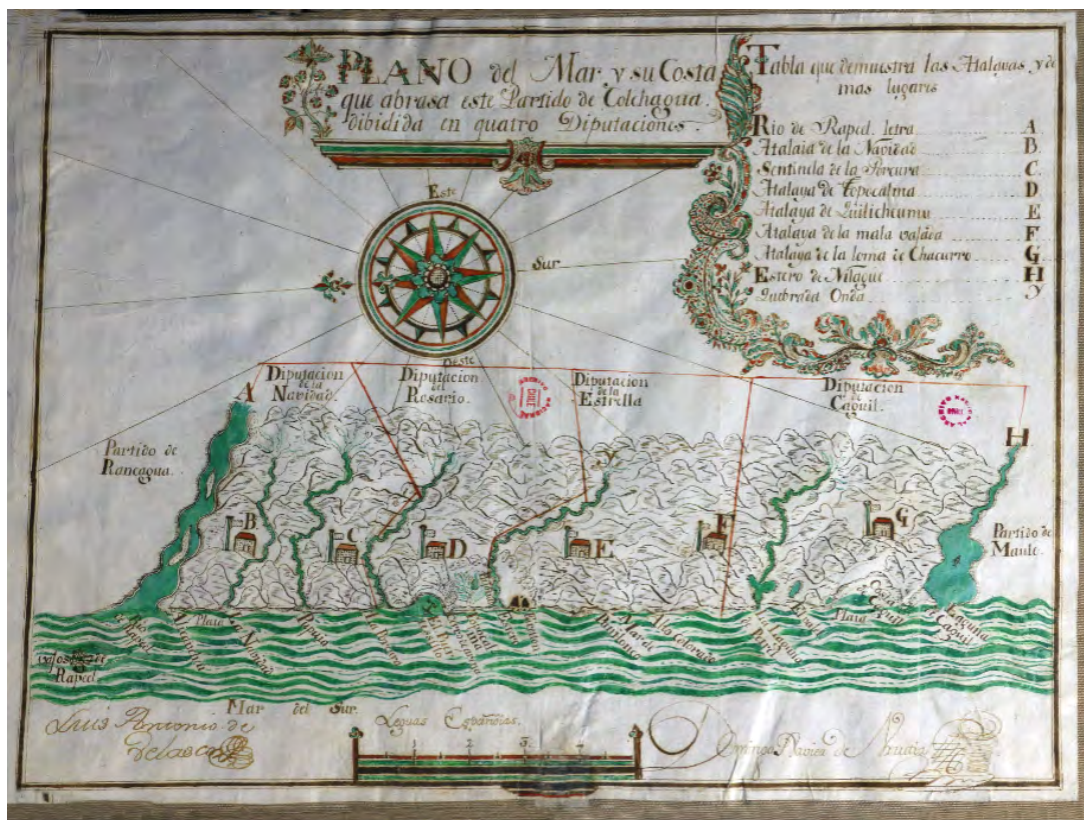 PLANO del Mar, y su Costa
que abrasa este Partido de Colchagua.
dibidida en quatro Diputaciones.
Tabla que demuestra las Atalayas y de
mas lugares
Rio de Raped. letra A.
Atalaia de la Navidad B.
Sentinela de la Porcura C.
Atalaya de Topocalma D
Atalaya de Quilicheumu E
Atalaya de la mala vajada F
Atalaya de la loma de Chacurro G
Estero de Nilague H
Quebrada Onda Y
Este
Sur
Oeste
A
Diputacion
de la
Navidad.
Diputacion
del
Rosario.
Diputacion
de la
Estrella
Diputacion
de
Caguil.
Partido de
Rancagua.
H
Y
B
C
D
E
F
G
Partido de
Maule.
Rio
Plaia
Navidad
Pupuia
Marca
Alto Colorado
Laguna
Plaia
Laguna
Caguil
Vajos de
Raped.
Mar del Sur.
Leguas Españolas.
1 2 3 4
Luis Antonio de
Velasco
Domingo Xavier de Urrutia